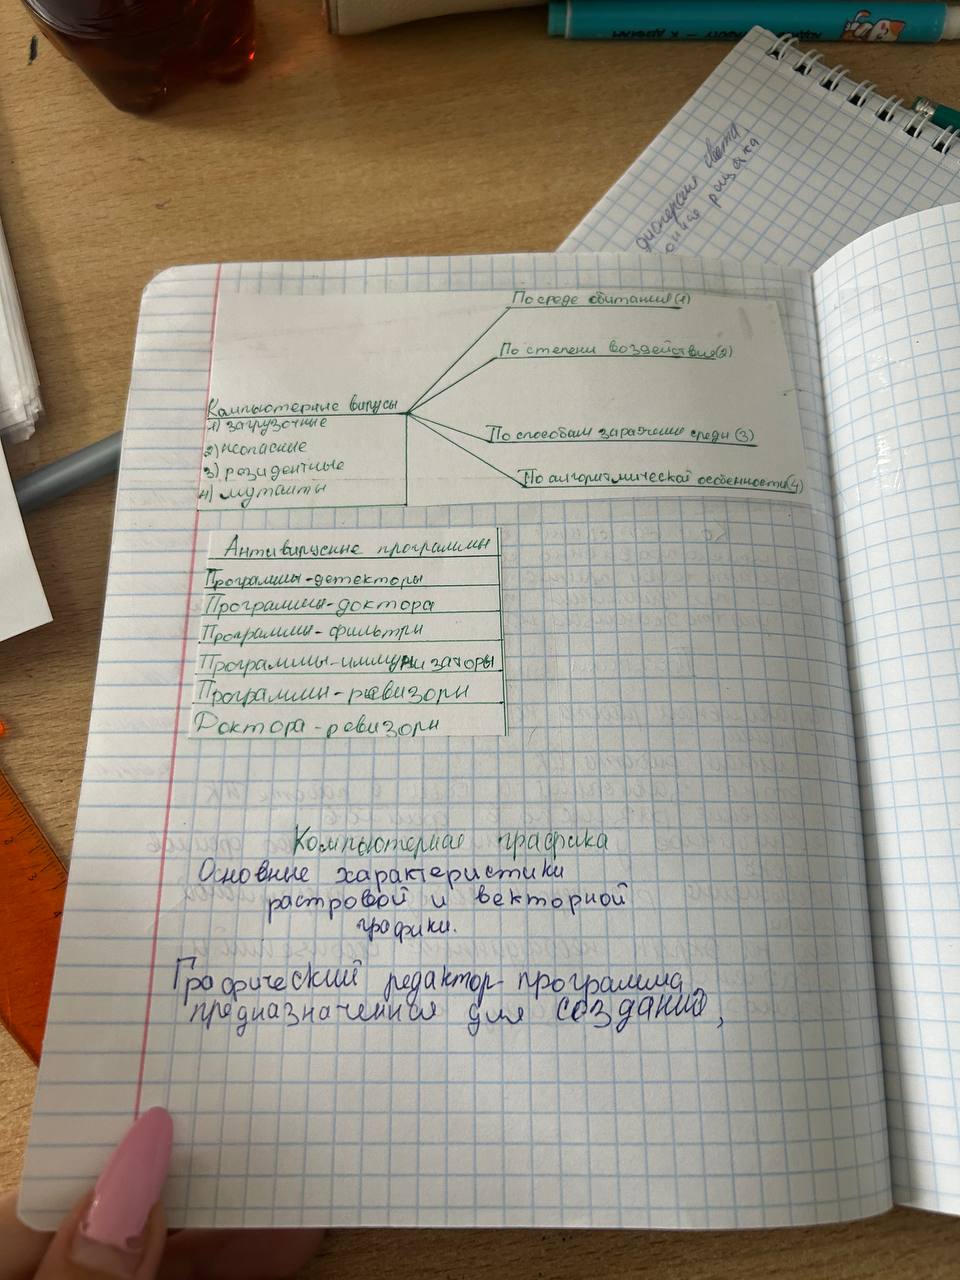 дисперсия света
По среде обитания (1)
По степени воздействия (2)
Компьютерные вирусы
1) загрузочные
2) неопасные
3) резидентные
4) мутанты
По способам заражение среды (3)
По алгоритмической особенности (4)
Антивирусные программы
Программы-детекторы
Программы-доктора
Программы-фильтры
Программы-иммунизаторы
Программы-ревизоры
Доктора-ревизоры
Компьютерная графика
Основные характеристики
растровой и векторной
графики.
Графический редактор-программа
предназначенная для созданий,